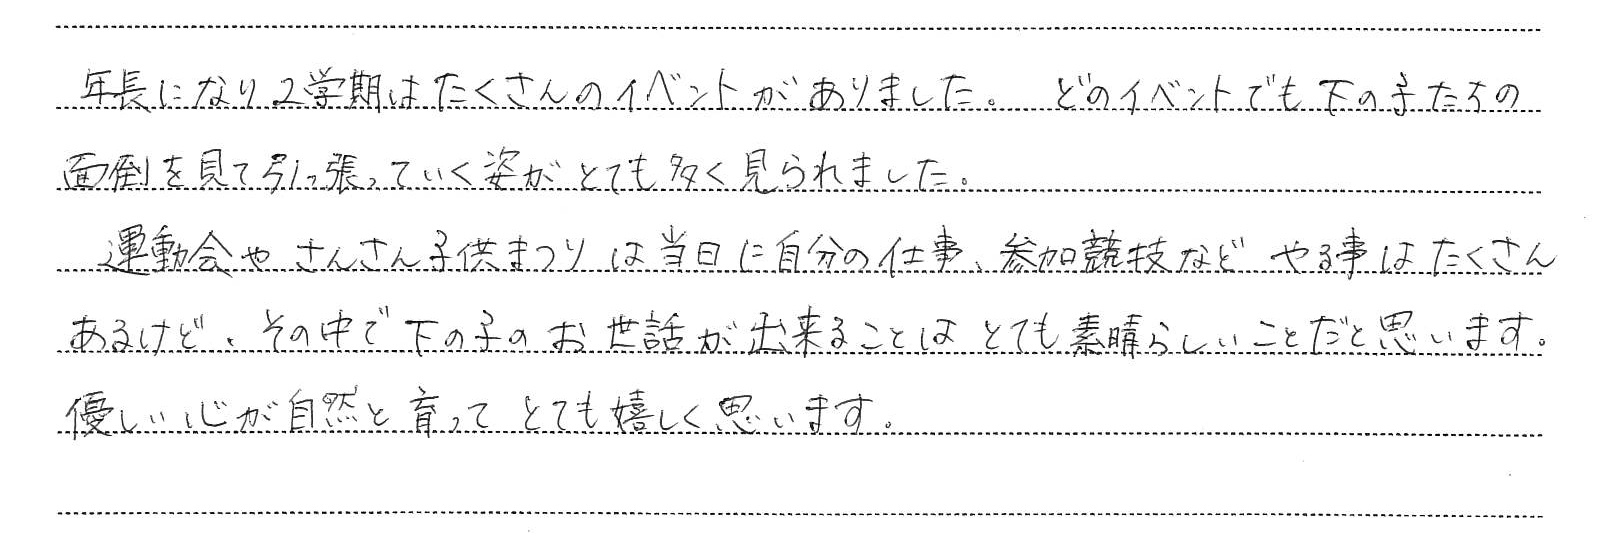 年長になり2学期はたくさんのイベントがありました。 どのイベントでも下の子たちの
面倒を見て引っ張っていく姿がとても多く見られました。
運動会やさんさん子供まつりは当日に自分の仕事、参加競技など やる事はたくさん
あるけど、その中で下の子のお世話が出来ることはとても素晴らしいことだと思います。
優しい心が自然と育ってとても嬉しく思います。